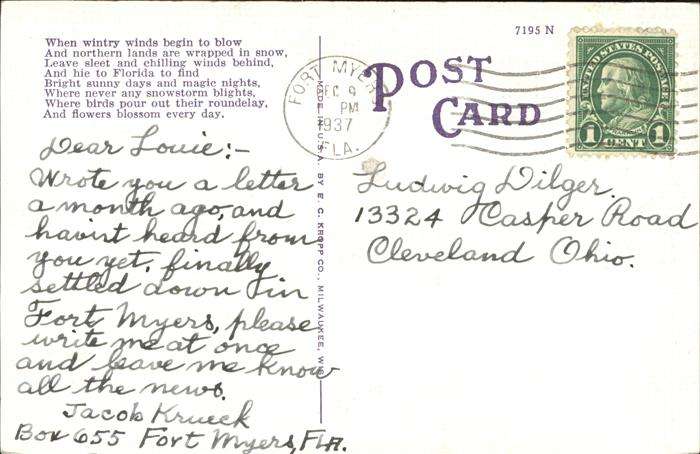 7195 N
When wintry winds begin to blow
And northern lands are wrapped in snow,
Leave sleet and chilling winds behind,
And hie to Florida to find
Bright sunny days and magic nights,
Where never any snowstorm blights,
Where birds pour out their roundelay,
And flowers blossom every day.
POST
CARD
FORT MYERS
DEC 9
PM
1937
FLA.
UNITED STATES POSTAGE
FRANKLIN
1 CENT 1
MADE IN U.S.A. BY E. C. KROPP CO., MILWAUKEE, WIS.
Dear Louie:-
Wrote you a letter
a month ago, and
havint heard from
you yet, finally
settled down in
Fort Myers, please
write me at once
and leave me know
all the news.
Jacob Krueck
Box 655 Fort Myers, FLA.
Ludwig Dilger.
13324 Casper Road
Cleveland Ohio.